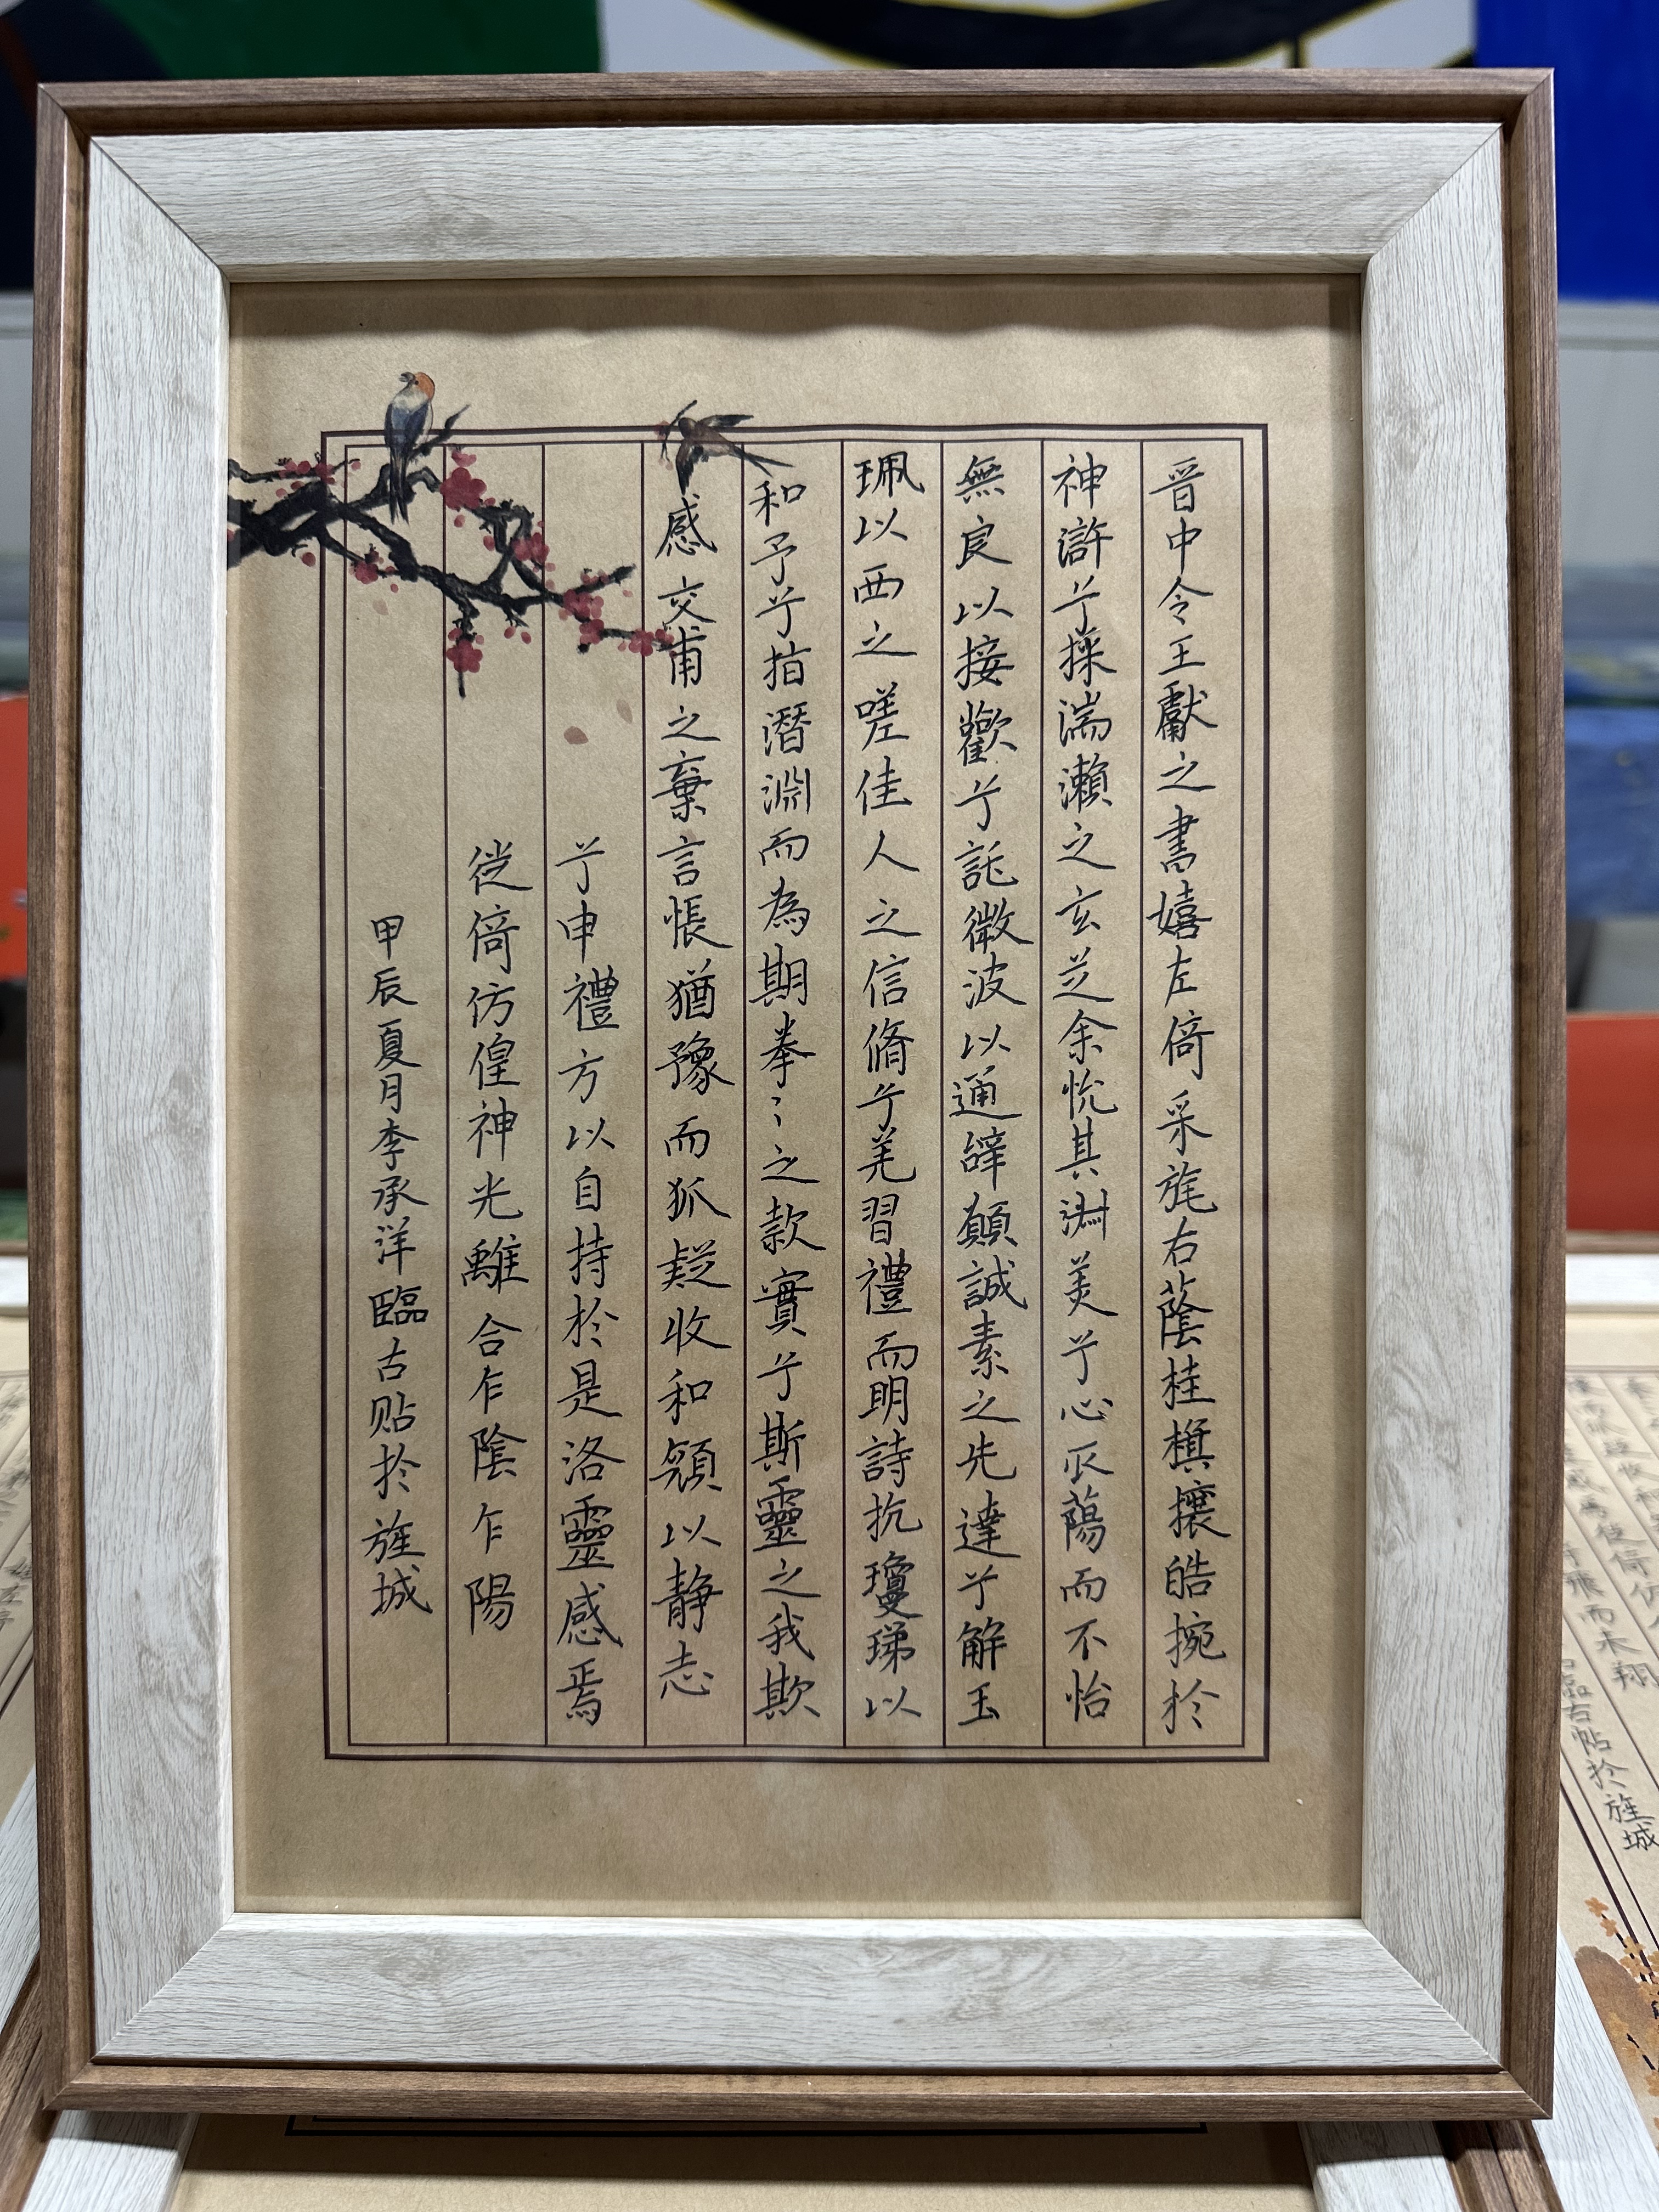 晉中令王獻之書嬉左倚采旄右蔭桂旗攘皓捥於
神滸兮採湍瀨之玄芝余悅其淑美兮心𠂢蕩而不怡
無良以接歡兮託微波以通辭願誠素之先達兮解玉
珮以西之嗟佳人之信脩兮羌習禮而明詩抗瓊珶以
和予兮指潛淵而為期拳〻之款實兮斯靈之我欺
感交甫之棄言悵猶豫而狐疑收和顏以静志
兮申禮方以自持於是洛靈感焉
徙倚仿偟神光離合乍陰乍陽
甲辰夏月李承洋臨古贴於旌城
臨古帖於旌城